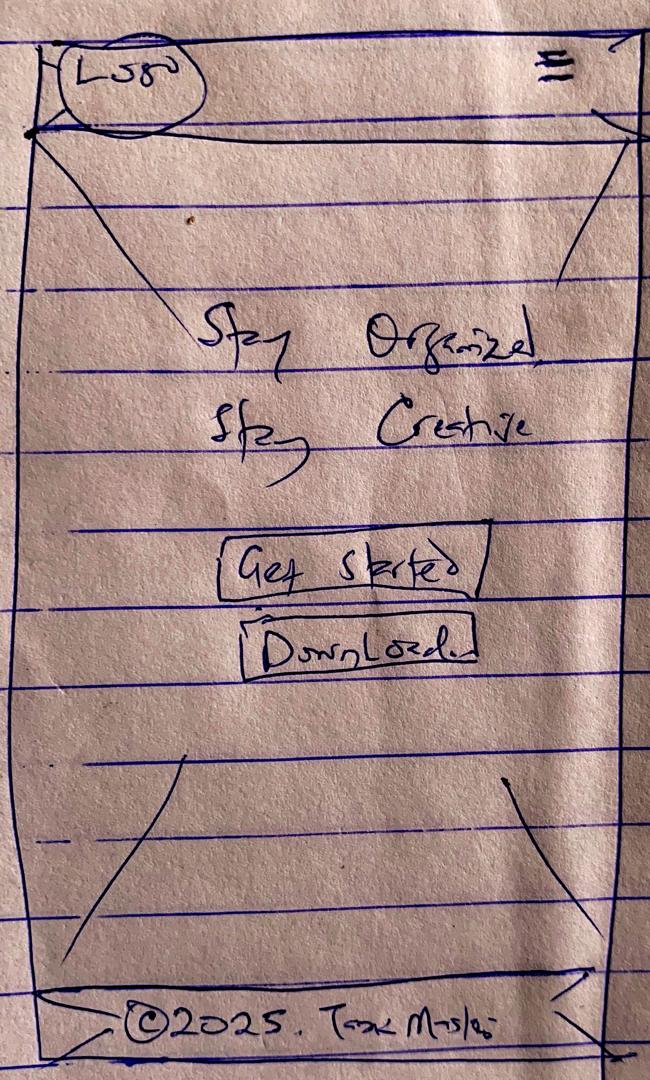 Logo
Stay Organized
Stay Creative
Get Started
Download
©2025. Task Master